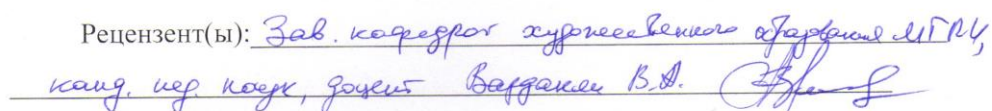 Рецензент(ы): Зав. кафедрой художественного образования МГПУ,
канд. пед. наук, доцент Варданян В.А.